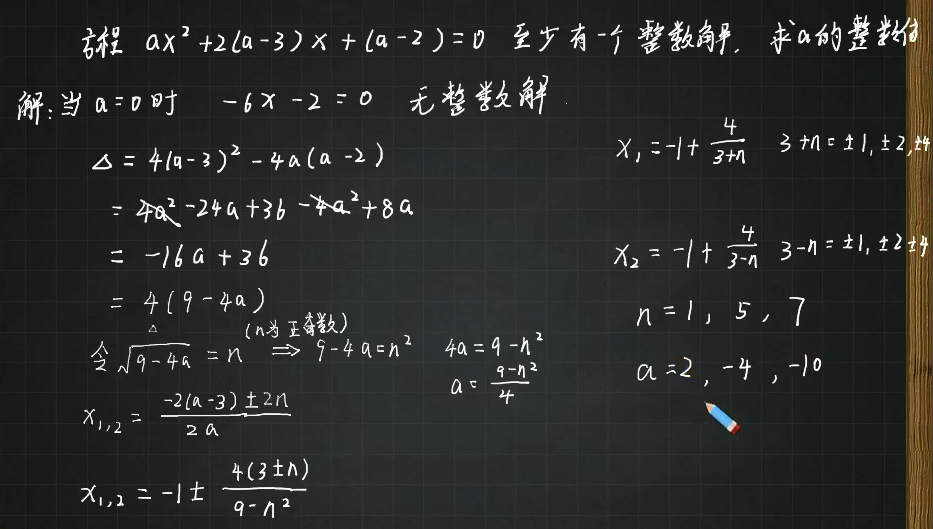 方程 ax²+2(a-3)x+(a-2)=0 至少有一个整数解. 求a的整数值
解:当a=0时 -6x-2=0 无整数解.
Δ=4(a-3)²-4a(a-2)
=4a²-24a+36-4a²+8a
=-16a+36
=4(9-4a)
(n为正奇数)
令√(9-4a)=n ⇒ 9-4a=n²
x₁,₂=(-2(a-3)±2n)/(2a)
x₁,₂=-1±(4(3±n))/(9-n²)
4a=9-n²
a=(9-n²)/4
x₁=-1+4/(3+n) 3+n=±1,±2,±4
x₂=-1+4/(3-n) 3-n=±1,±2±4
n=1, 5, 7
a=2, -4, -10